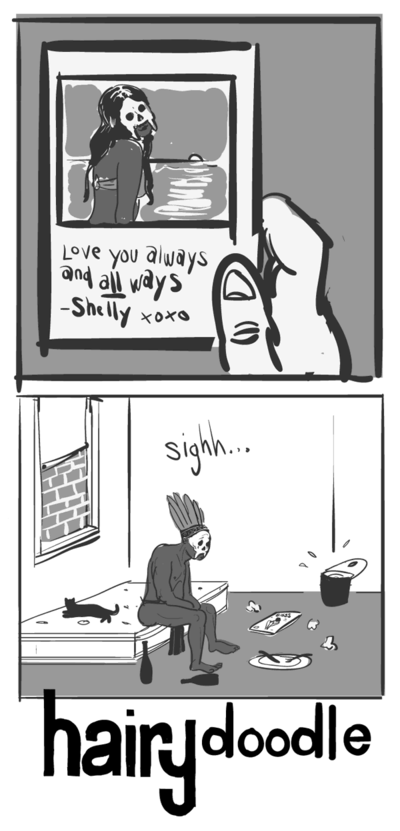 Love you always
and all ways
-Shelly xoxo
sighh...
hairy doodle